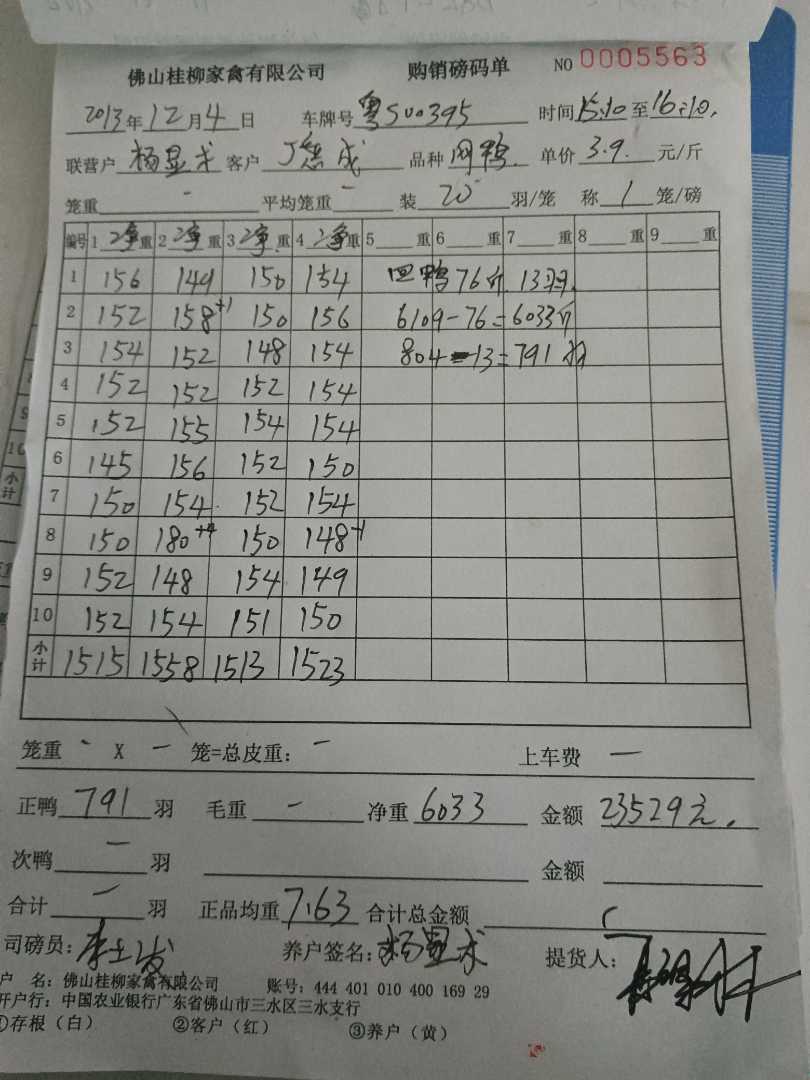 佛山桂柳家禽有限公司 购销磅码单 NO 0005563
2013年12月4日 车牌号 粤SU0395 时间 15:10 至 16:10.
联营户 杨显术 客户 成 品种 鸭 单价 3.9 元/斤
笼重 - 平均笼重 - 装 20 羽/笼 称 1 笼/磅
编号 1 净重 2 净重 3 净重 4 净重 5 重 6 重 7 重 8 重 9 重
1 156 149 150 154 回鸭76斤.13羽.
2 152 158+1 150 156 6109-76=6033斤
3 154 152 148 154 804-13=791羽
4 152 152 152 154
5 152 155 154 154
6 145 156 152 150
7 150 154 152 154
8 150 180+4 150 148-1
9 152 148 154 149
10 152 154 151 150
小计 1515 1558 1513 1523
笼重 - X - 笼=总皮重: - 上车费 -
正鸭 791 羽 毛重 - 净重 6033 金额 23529元.
次鸭 - 羽 金额
合计 - 羽 正品均重 7.63 合计总金额
司磅员: 养户签名: 杨显术 提货人:
户 名: 佛山桂柳家禽有限公司 账号: 444 401 010 400 169 29
开户行: 中国农业银行广东省佛山市三水区三水支行
①存根(白) ②客户(红) ③养户(黄)